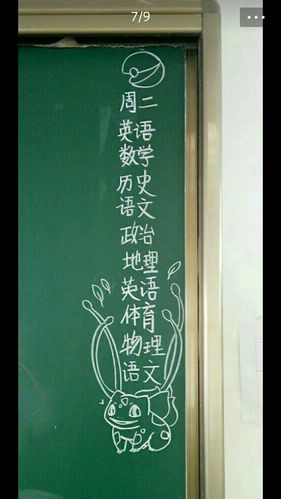 7/9
周二
英语
数学
历史
语文
政治
地理
英语
体育
物理
语文